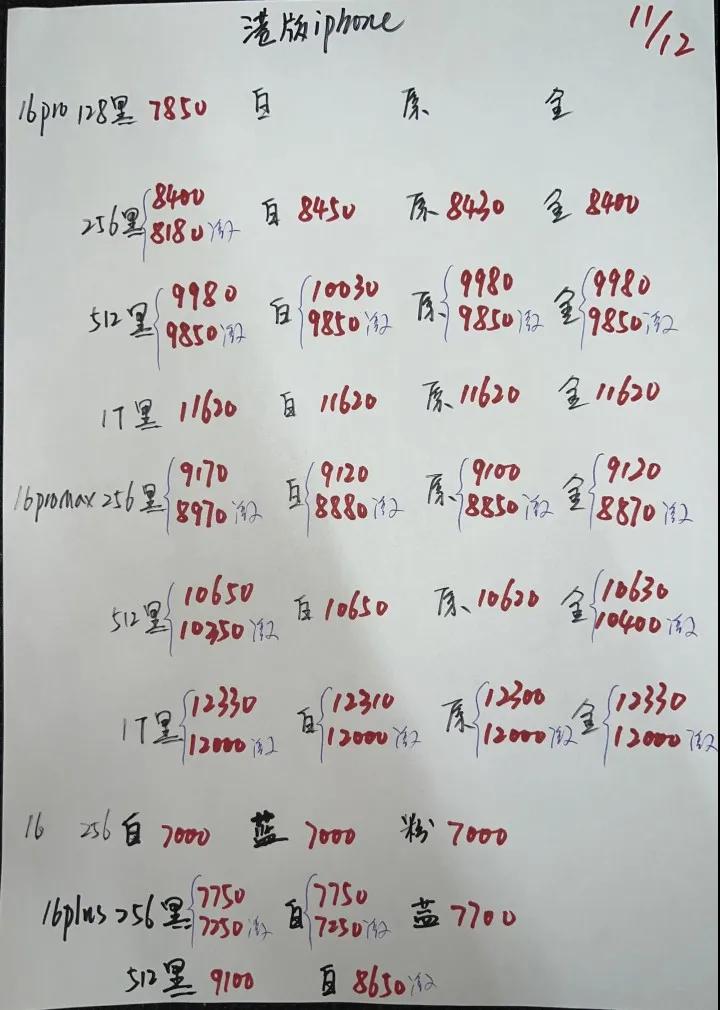 港版iphone 11/12
16pro 128黑 7850 白 原 金
256黑 8400 白 8450 原 8430 金 8400
8180激
512黑 9980 白 10030 原 9980 金 9980
9850激 9850激 9850激 9850激
1T黑 11620 白 11620 原 11620 金 11620
16promax 256黑 9170 白 9120 原 9100 金 9120
8970激 8880激 8850激 8870激
512黑 10650 白 10650 原 10620 金 10630
10350激 10400激
1T黑 12330 白 12310 原 12300 金 12330
12000激 12000激 12000激 12000激
16 256白 7000 蓝 7000 粉 7000
16plus 256黑 7750 白 7750 蓝 7700
7250激 7250激
512黑 9100 白 8650激